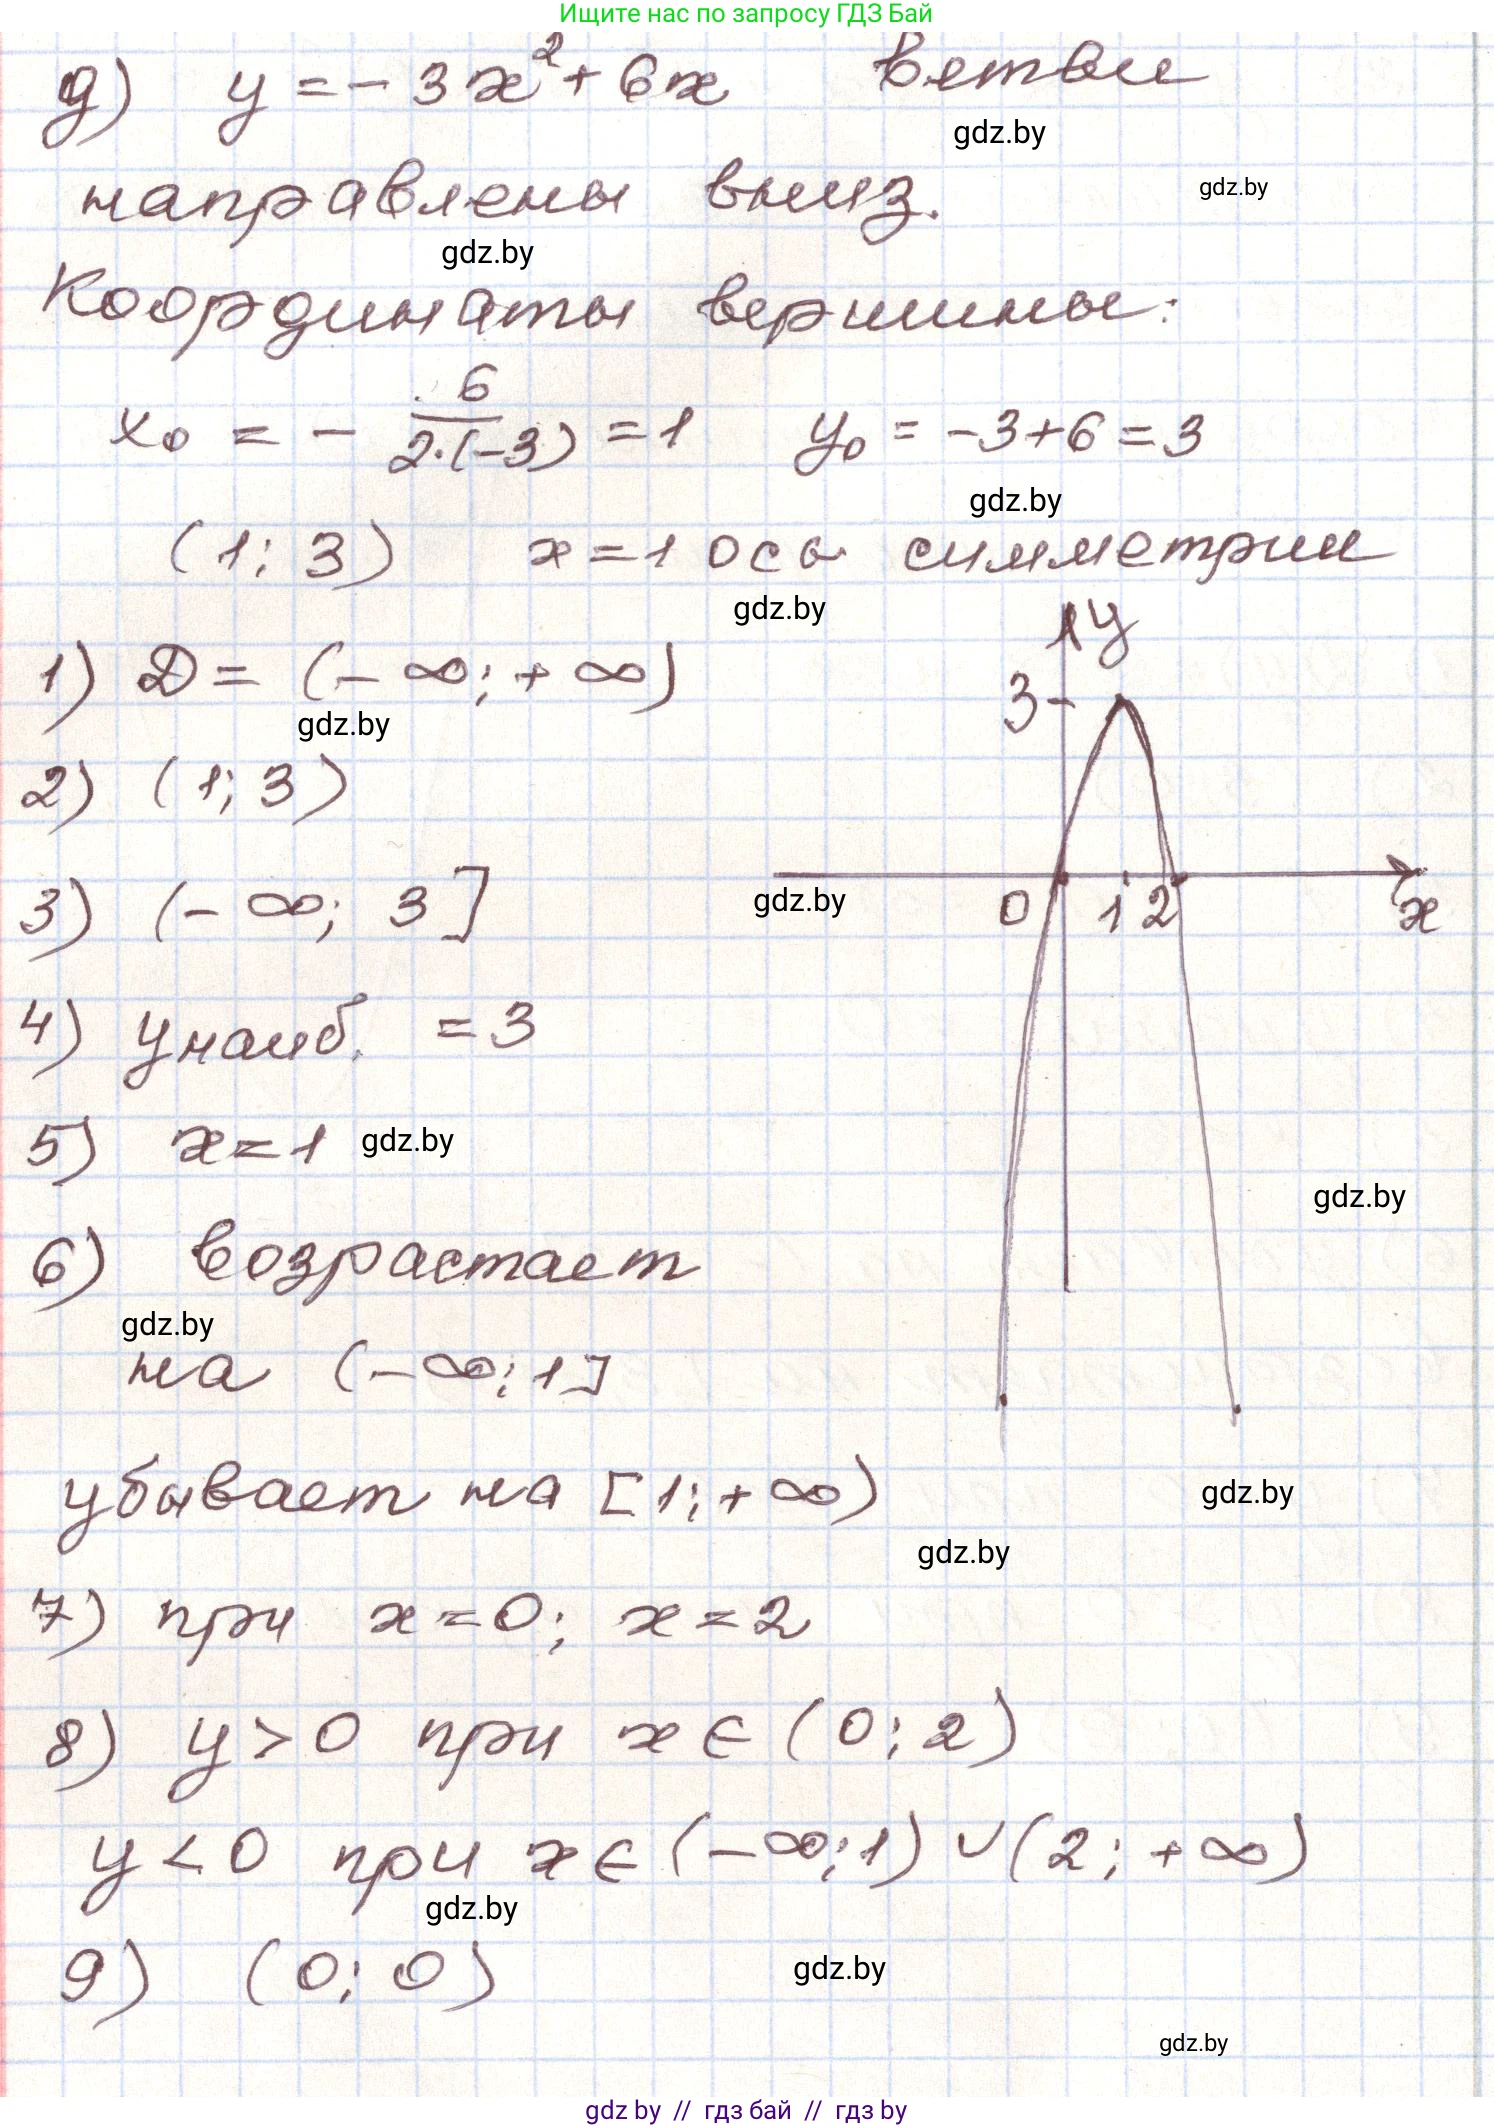 Ищите нас по запросу ГДЗ Бай
д) y = - 3x² + 6x ветви
gdz.by
направлены вниз.
gdz.by
gdz.by
Координаты вершины:
x₀ = - 6/(2·(-3)) = 1 y₀ = -3+6 = 3
gdz.by
(1; 3) x = 1 ось симметрии
gdz.by
y
1) D = (- ∞; + ∞)
3
gdz.by
2) (1; 3)
gdz.by
0 1 2 x
3) (- ∞; 3]
4) y наиб. = 3
5) x = 1 gdz.by
gdz.by
6) возрастает
gdz.by
на (-∞; 1]
убывает на [1; + ∞)
gdz.by
gdz.by
7) при x = 0; x = 2
8) y > 0 при x ∈ (0; 2)
y < 0 при x ∈ (-∞; 1) ∪ (2; +∞)
gdz.by
9) (0; 0)
gdz.by
gdz.by
gdz.by // гдз бай // гдз by